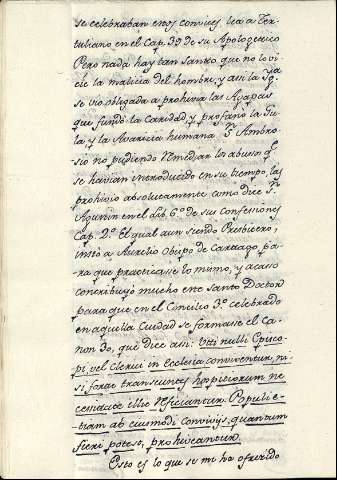 se celebraban estos convites, lea a Ter-
tuliano en el Cap. 39 de su Apologetico
Pero nada hay tan santo que no lo vi-
cie la malicia del hombre, y asi la Yga
se vio obligada a prohivir las Agapas
que fundó la Caridad, y profanó la Gu-
la y la Avaricia humana. Sn Ambro-
sio no pudiendo remediar los abusos qe
se havian introducido en su tiempo, las
prohivio absolutamente como dice Sn
Agustin en el Lib. 6º de sus Confesiones
Cap. 2º El qual aun siendo Presbitero,
instó a Aurelio Obispo de Cartago, pa-
ra que practicase lo mismo, y acaso
contribuyó mucho este Santo Doctor
para que en el Concilio 3º celebrado
en aquella Ciudad se formase el Ca-
non 30, que dice asi: Uti nulli Episco-
pi, vel Clerici in Ecclesia conviventur, ni-
si forte transeuntes hospitiorum ne
cesitate illic reficiantur. Populi e-
tiam ab eiusmodi convivijs, quantum
fieri potest, prohiveantur.
Esto es lo que se me ha ofrecido